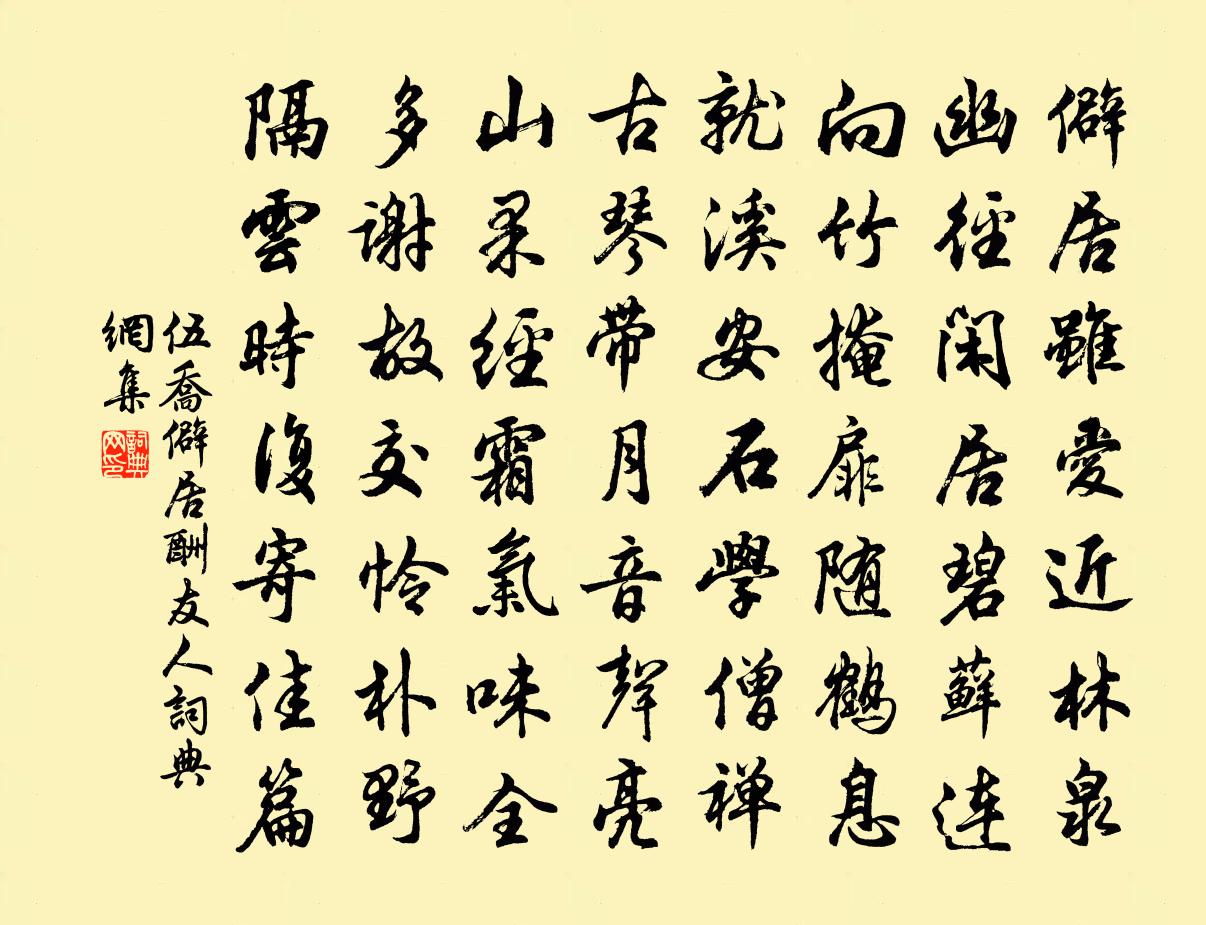 僻居雖愛近林泉
幽徑閑居碧蘚連
向竹掩扉随鶴息
就溪安石學僧禅
古琴帶月音聲亮
山果經霜氣味全
多謝故交怜朴野
隔雲時復寄佳篇
伍喬僻居酬友人詞典
網集
詞典
网印